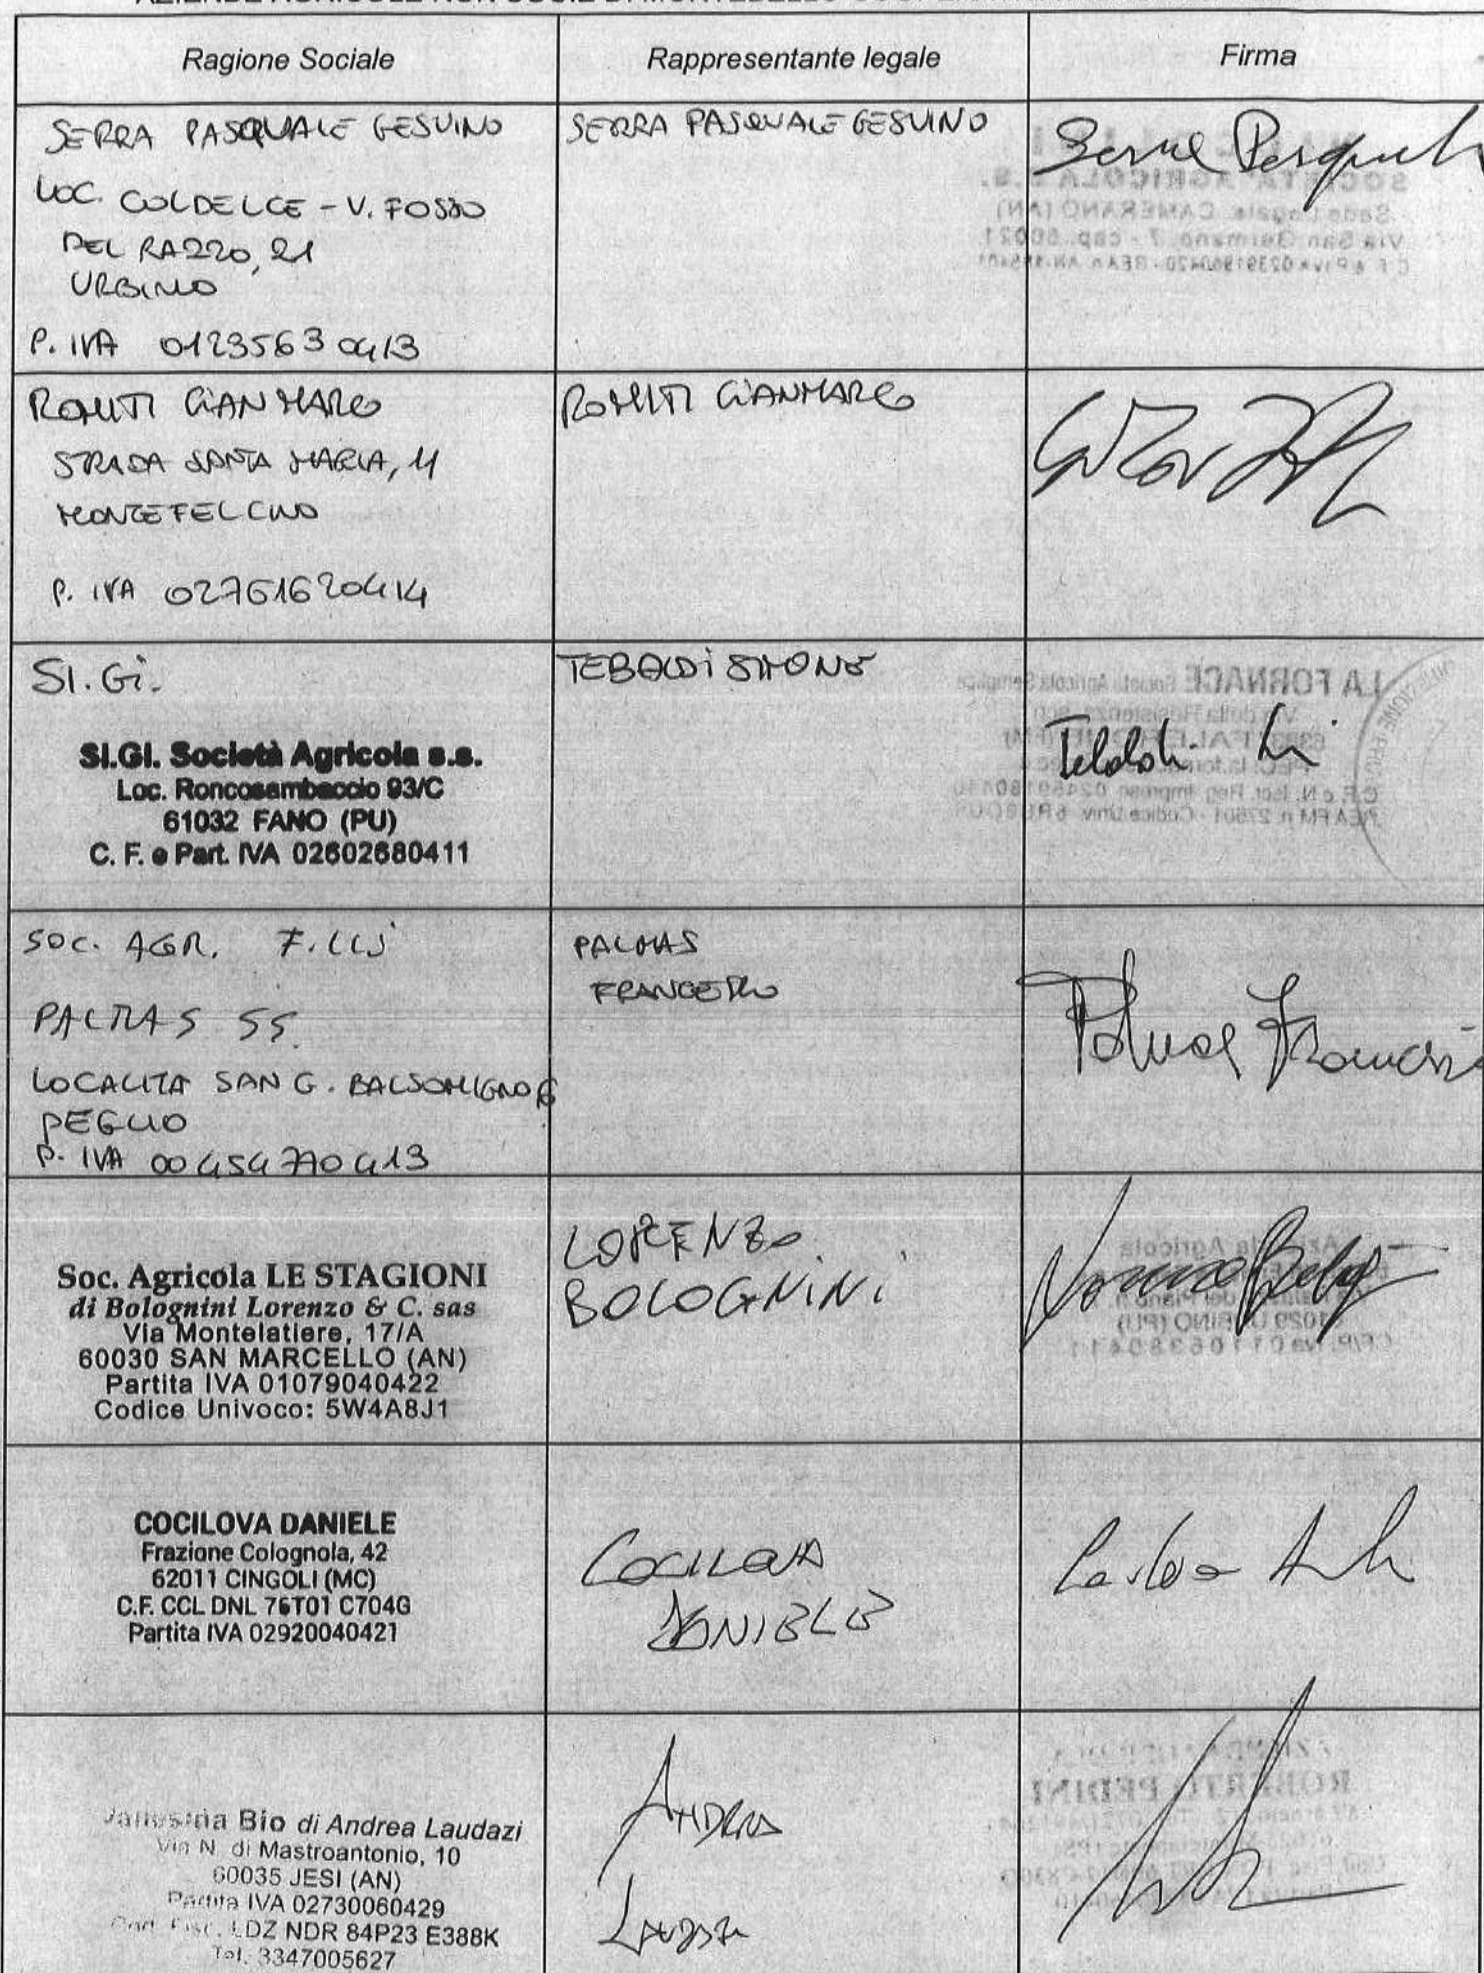 Ragione Sociale
Rappresentante legale
Firma
SERRA PASQUALE GESUINO
LOC. COLDELCE - V. FOSSO
DEL RAZZO, 21
URBINO
P. IVA 01235630413
SERRA PASQUALE GESUINO
Serra Pasquale
ROMITI GIANMARCO
STRADA SANTA MARIA, 11
MONTEFELCINO
P. IVA 02761620414
ROMITI GIANMARCO
SI.Gi.
SI.GI. Società Agricola s.s.
Loc. Roncosambaccio 93/C
61032 FANO (PU)
C. F. e Part. IVA 02602680411
TEBALDI SIMONE
SOC. AGR. F.LLI
PALMAS SS.
LOCALITA SAN G. BALSOMIGNO 6
PEGLIO
P. IVA 00454770413
PALMAS
FRANCESCO
Palmas Francesco
Soc. Agricola LE STAGIONI
di Bolognini Lorenzo & C. sas
Via Montelatiere, 17/A
60030 SAN MARCELLO (AN)
Partita IVA 01079040422
Codice Univoco: 5W4A8J1
LORENZO
BOLOGNINI
COCILOVA DANIELE
Frazione Colognola, 42
62011 CINGOLI (MC)
C.F. CCL DNL 76T01 C704G
Partita IVA 02920040421
COCILOVA
DANIELE
Bio di Andrea Laudazi
Via N. di Mastroantonio, 10
60035 JESI (AN)
Partita IVA 02730060429
Cod. Fisc. LDZ NDR 84P23 E388K
Tel. 3347005627
ANDREA
LAUDAZI